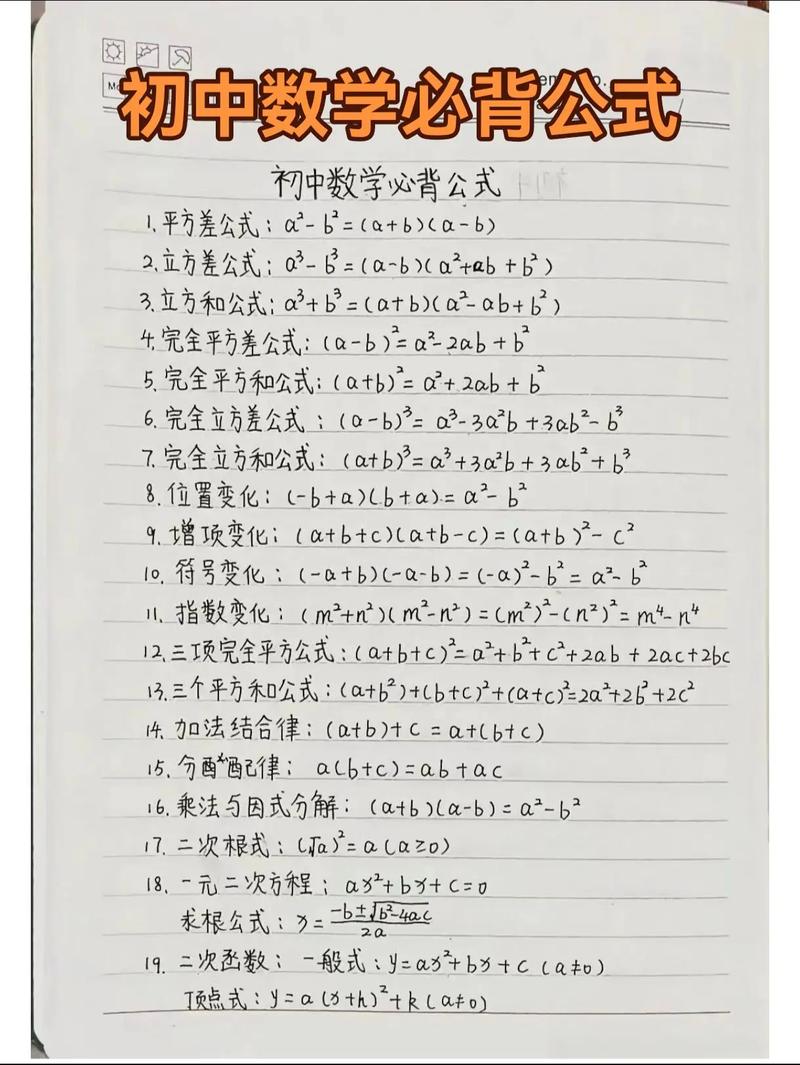 初中数学必背公式
初中数学必背公式
1.平方差公式：a²-b²=(a+b)(a-b)
2.立方差公式：a³-b³=(a-b)(a²+ab+b²)
3.立方和公式：a³+b³=(a+b)(a²-ab+b²)
4.完全平方差公式：(a-b)²=a²-2ab+b²
5.完全平方和公式：(a+b)²=a²+2ab+b²
6.完全立方差公式：(a-b)³=a³-3a²b+3ab²-b³
7.完全立方和公式：(a+b)³=a³+3a²b+3ab²+b³
8.位置变化：(-b+a)(b+a)=a²-b²
9.增项变化：(a+b+c)(a+b-c)=(a+b)²-c²
10.符号变化：(-a+b)(-a-b)=(-a)²-b²=a²-b²
11.指数变化：(m²+n²)(m²-n²)=(m²)²-(n²)²=m⁴-n⁴
12.三项完全平方公式：(a+b+c)²=a²+b²+c²+2ab+2ac+2bc
13.三个平方和公式：(a+b²)+(b+c)²+(a+c)²=2a²+2b²+2c²
14.加法结合律：(a+b)+c=a+(b+c)
15.分配配律：a(b+c)=ab+ac
16.乘法与因式分解：(a+b)(a-b)=a²-b²
17.二次根式：(√a)²=a(a≥0)
18.一元二次方程：ax²+bx+c=0
求根公式：x=(-b±√(b²-4ac))/2a
19.二次函数：一般式：y=ax²+bx+c(a≠0)
顶点式：y=a(x+h)²+k(a≠0)